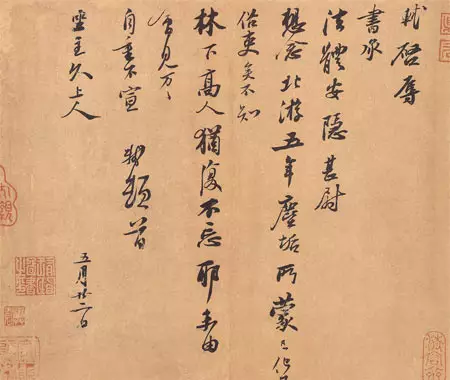 軾啓辱
書承
法體安隱甚尉
想念北游五年塵垢所蒙已化
俗吏矣不知
林下高人猶復不忘耶未由
會見万々
自重不宣 軾頓首
坐主久上人
五月廿二日